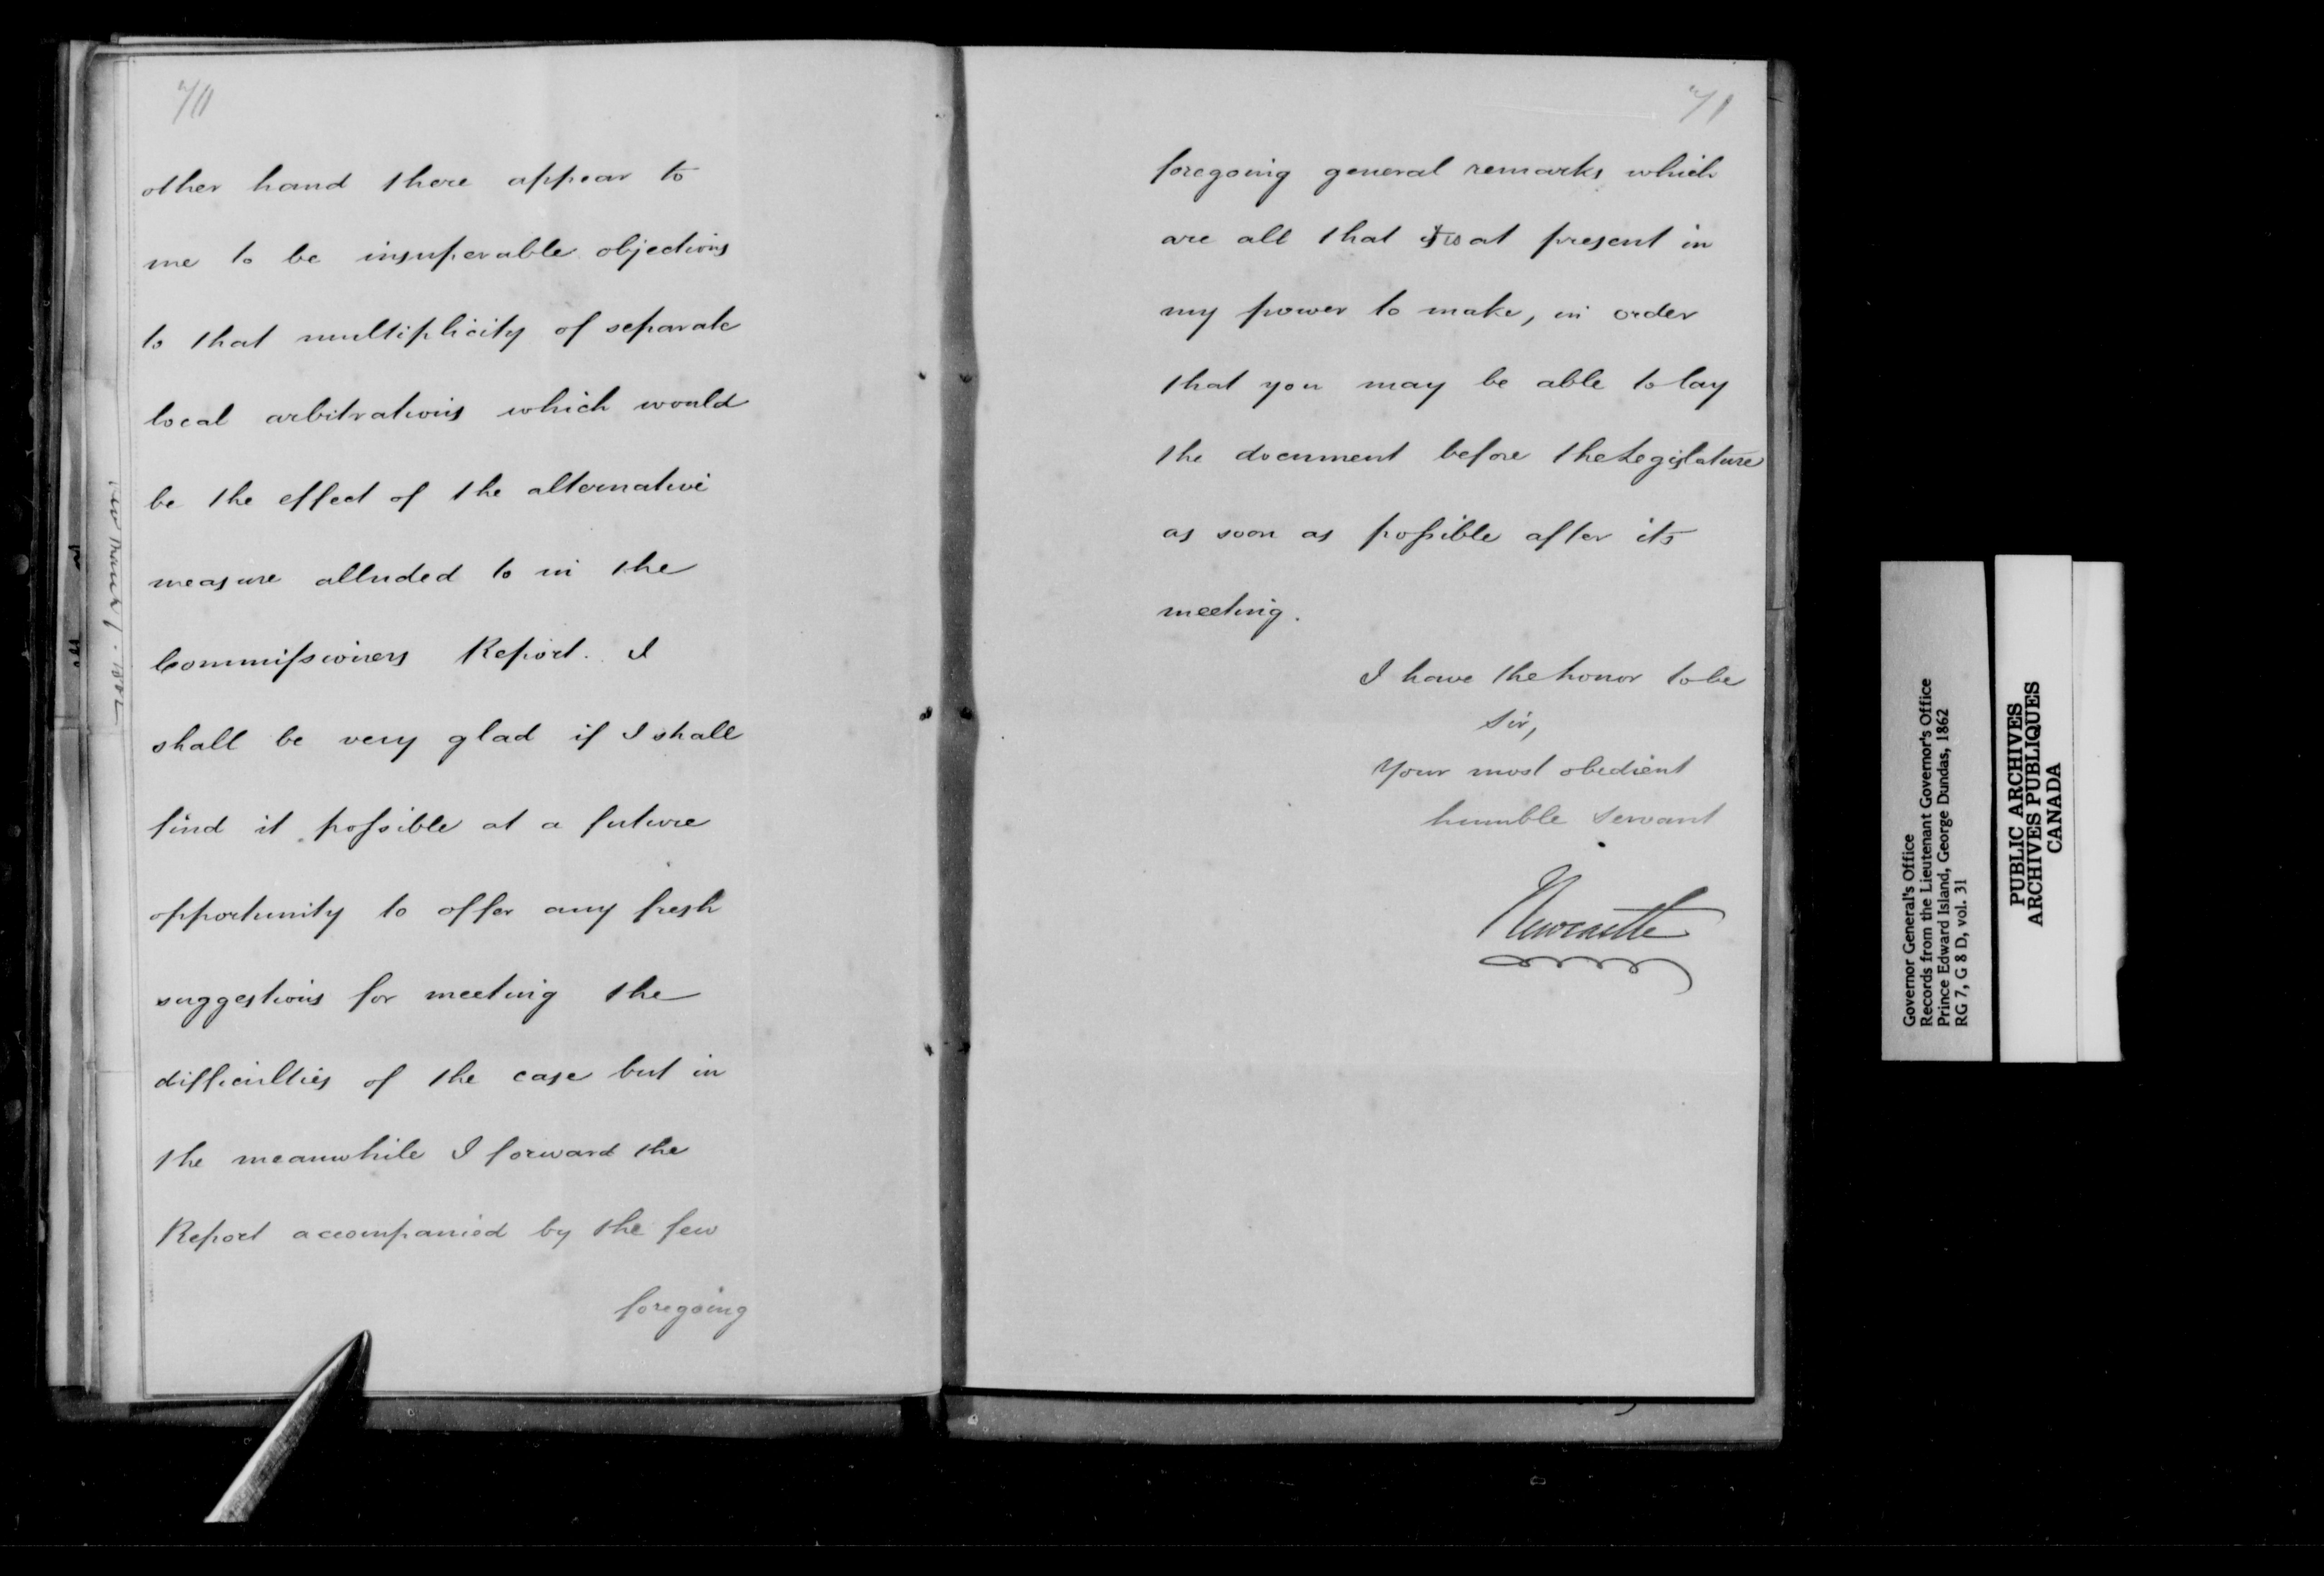 other hand there appear to
me to be insuperable objections
to that multiplicity of separate
local arbitrations which would
be the effect of the alternative
measure alluded to in the
Commissioners Report. I
shall be very glad if I shall
find it possible at a future
opportunity to offer any fresh
suggestions for meeting the
difficulties of the case but in
the meanwhile I forward the
Report accompanied by the few
foregoing
71
foregoing general remarks which
are all that it is at present in
my power to make, in order
that you may be able to lay
the document before the Legislature
as soon as possible after its
meeting.
I have the honor to be
Sir,
Your most obedient
humble Servant
Newcastle
Governor General's Office
Records from the Lieutenant Governor's Office
Prince Edward Island, George Dundas, 1862
RG 7, G 8 D, vol. 31
PUBLIC ARCHIVES
ARCHIVES PUBLIQUES
CANADA